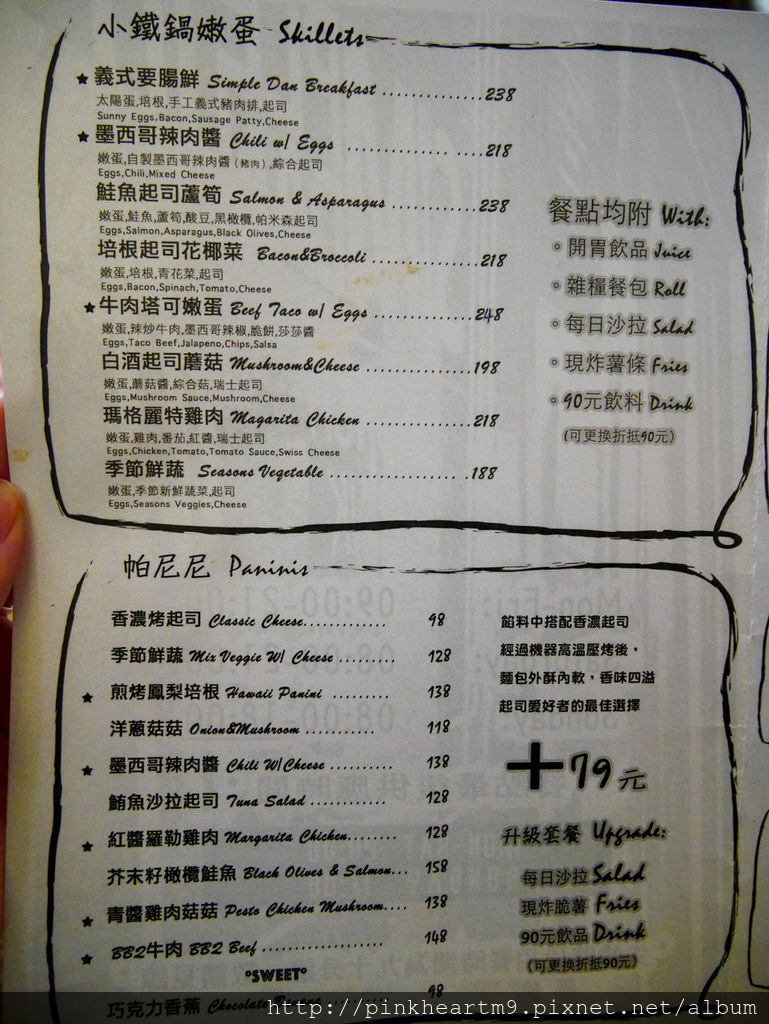 小鐵鍋嫩蛋 Skillets
★義式要腸鮮 Simple Dan Breakfast ..............238
太陽蛋,培根,手工義式豬肉排,起司
Sunny Eggs,Bacon,Sausage Patty,Cheese
★墨西哥辣肉醬 Chili w/ Eggs .................. ....218
嫩蛋,自製墨西哥辣肉醬(豬肉),綜合起司
Eggs,Chili,Mixed Cheese
鮭魚起司蘆筍 Salmon & Asparagus ............238
嫩蛋,鮭魚,蘆筍,酸豆,黑橄欖,帕米森起司
Eggs,Salmon,Asparagus,Black Olives,Cheese
培根起司花椰菜 Bacon&Broccoli ................218
嫩蛋,培根,青花菜,起司
Eggs,Bacon,Spinach,Tomato,Cheese
★牛肉塔可嫩蛋 Beef Taco w/ Eggs ..............248
嫩蛋,辣炒牛肉,墨西哥辣椒,脆餅,莎莎醬
Eggs,Taco Beef,Jalapeno,Chips,Salsa
白酒起司蘑菇 Mushroom&Cheese ................198
嫩蛋,蘑菇醬,綜合菇,瑞士起司
Eggs,Mushroom Sauce,Mushroom,Cheese
瑪格麗特雞肉 Magarita Chicken ................218
嫩蛋,雞肉,番茄,紅醬,瑞士起司
Eggs,Chicken,Tomato,Tomato Sauce,Swiss Cheese
季節鮮蔬 Seasons Vegetable .................. .188
嫩蛋,季節新鮮蔬菜,起司
Eggs,Seasons Veggies,Cheese
餐點均附 With:
開胃飲品 Juice
雜糧餐包 Roll
每日沙拉 Salad
現炸薯條 Fries
90元飲料 Drink
(可更換折抵90元)
帕尼尼 Paninis
香濃烤起司 Classic Cheese............. 98
季節鮮蔬 Mix Veggie W/ Cheese ......... 128
★ 煎烤鳳梨培根 Hawaii Panini ......... 138
洋蔥菇菇 Onion&Mushroom ........... 118
★ 墨西哥辣肉醬 Chili W/Cheese .......... 138
鮪魚沙拉起司 Tuna Salad ............ 128
★ 紅醬羅勒雞肉 Margarita Chicken........ 128
芥末籽橄欖鮭魚 Black Olives & Salmon... 158
★ 青醬雞肉菇菇 Pesto Chicken Mushroom.... 138
★ BBQ牛肉 BBQ Beef ................... 148
°SWEET°
巧克力香蕉 Chocolate Banana ......... 98
餡料中搭配香濃起司
經過機器高溫壓烤後,
麵包外酥內軟,香味四溢
起司愛好者的最佳選擇
+79元
升級套餐 Upgrade:
每日沙拉 Salad
現炸脆薯 Fries
90元飲品 Drink
(可更換折抵90元)
http://pinkheartm9.pixnet.net/album